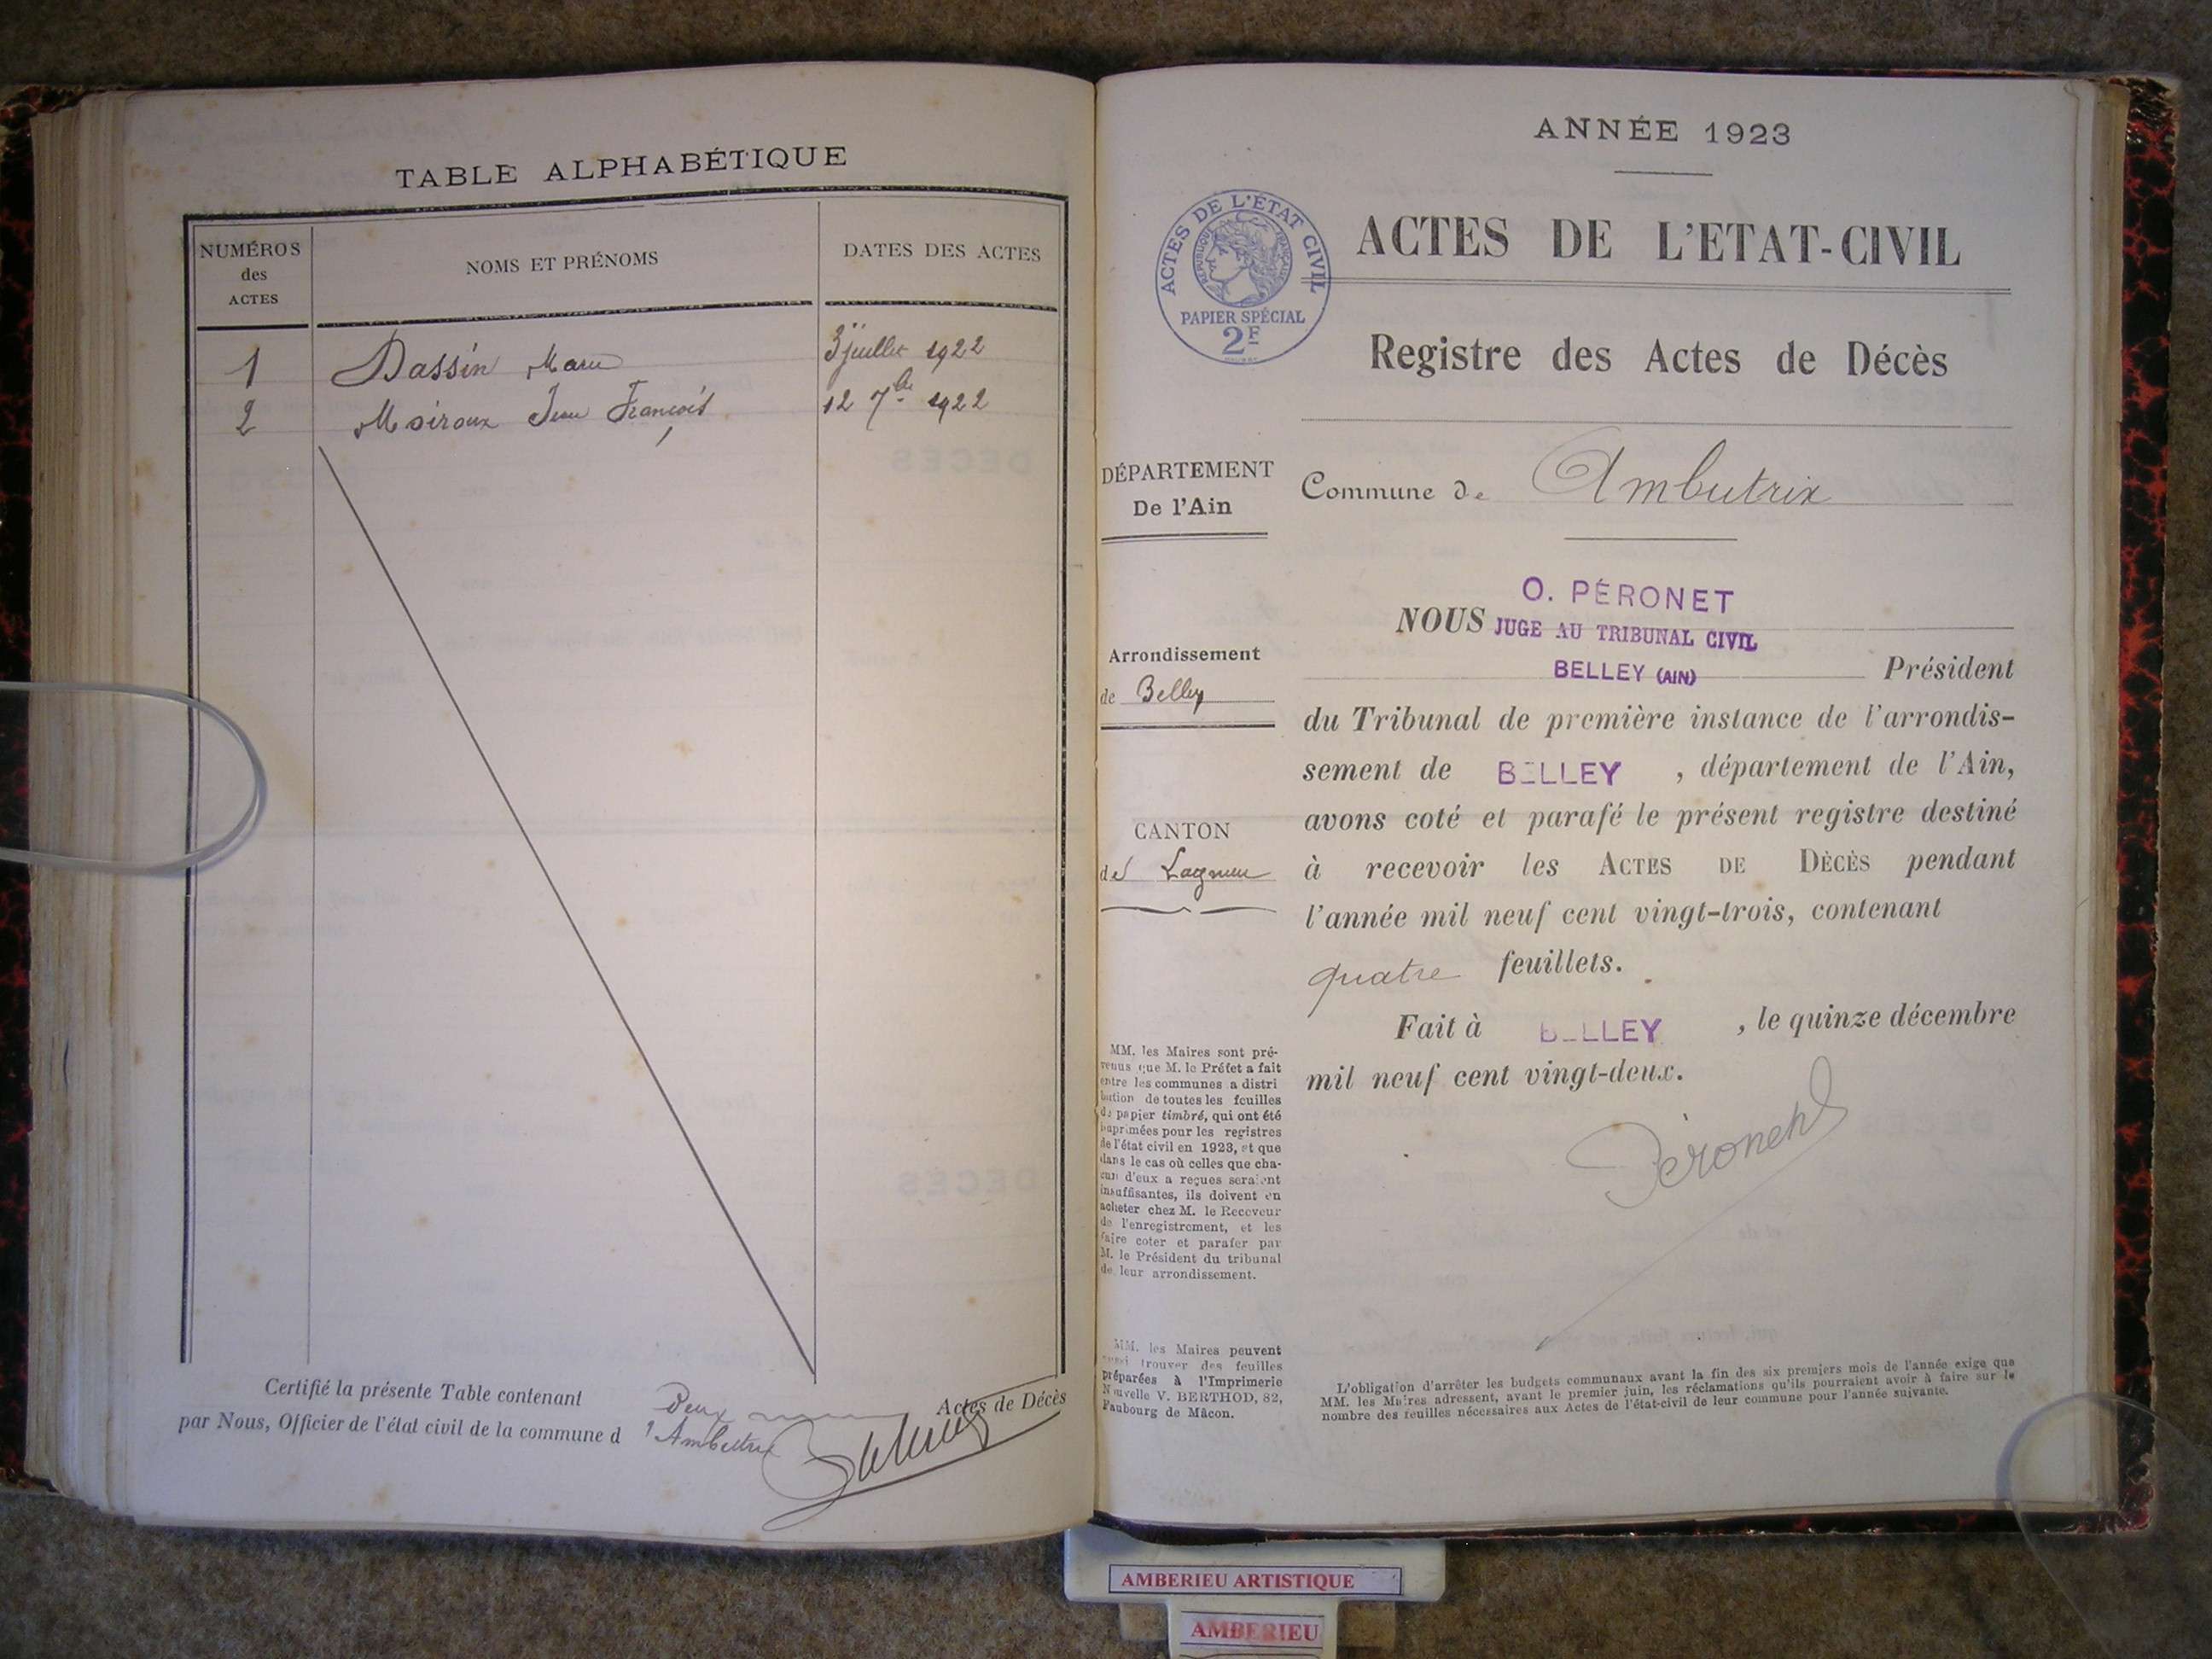 TABLE ALPHABÉTIQUE
NUMÉROS
des
ACTES
NOMS ET PRÉNOMS
DATES DES ACTES
1 Dassin Marie 3 juillet 1922
2 Moiroux Jean François 12 7bre 1922
Certifié la présente Table contenant Deux Actes de Décès
par Nous, Officier de l'état civil de la commune d'Ambutrix
ANNÉE 1923
ACTES DE L'ÉTAT CIVIL
RÉPUBLIQUE FRANÇAISE
PAPIER SPÉCIAL
2F
ACTES DE L'ETAT-CIVIL
Registre des Actes de Décès
DÉPARTEMENT
De l'Ain
Commune de Ambutrix
Arrondissement
de Belley
CANTON
de Lagnieu
O. PÉRONET
NOUS JUGE AU TRIBUNAL CIVIL
BELLEY (AIN) Président
du Tribunal de première instance de l'arrondis-
sement de BELLEY, département de l'Ain,
avons coté et parafé le présent registre destiné
à recevoir les ACTES DE DÉCÈS pendant
l'année mil neuf cent vingt-trois, contenant
quatre feuillets.
Fait à BELLEY, le quinze décembre
mil neuf cent vingt-deux.
Péronet
MM. les Maires sont pré-
venus que M. le Préfet a fait
entre les communes a distri
bution de toutes les feuilles
de papier timbré, qui ont été
imprimées pour les registres
de l'état civil en 1923, et que
dans le cas où celles que cha-
cun d'eux a reçues seraient
insuffisantes, ils doivent en
acheter chez M. le Receveur
de l'enregistrement, et les
faire coter et parafer par
M. le Président du tribunal
de leur arrondissement.
MM. les Maires peuvent
aussi trouver des feuilles
préparées à l'Imprimerie
Nouvelle V. BERTHOD, 82,
Faubourg de Mâcon.
L'obligation d'arrêter les budgets communaux avant la fin des six premiers mois de l'année exige que
MM. les Maires adressent, avant le premier juin, les réclamations qu'ils pourraient avoir à faire sur le
nombre des feuilles nécessaires aux Actes de l'état-civil de leur commune pour l'année suivante.
AMBERIEU ARTISTIQUE
AMBERIEU